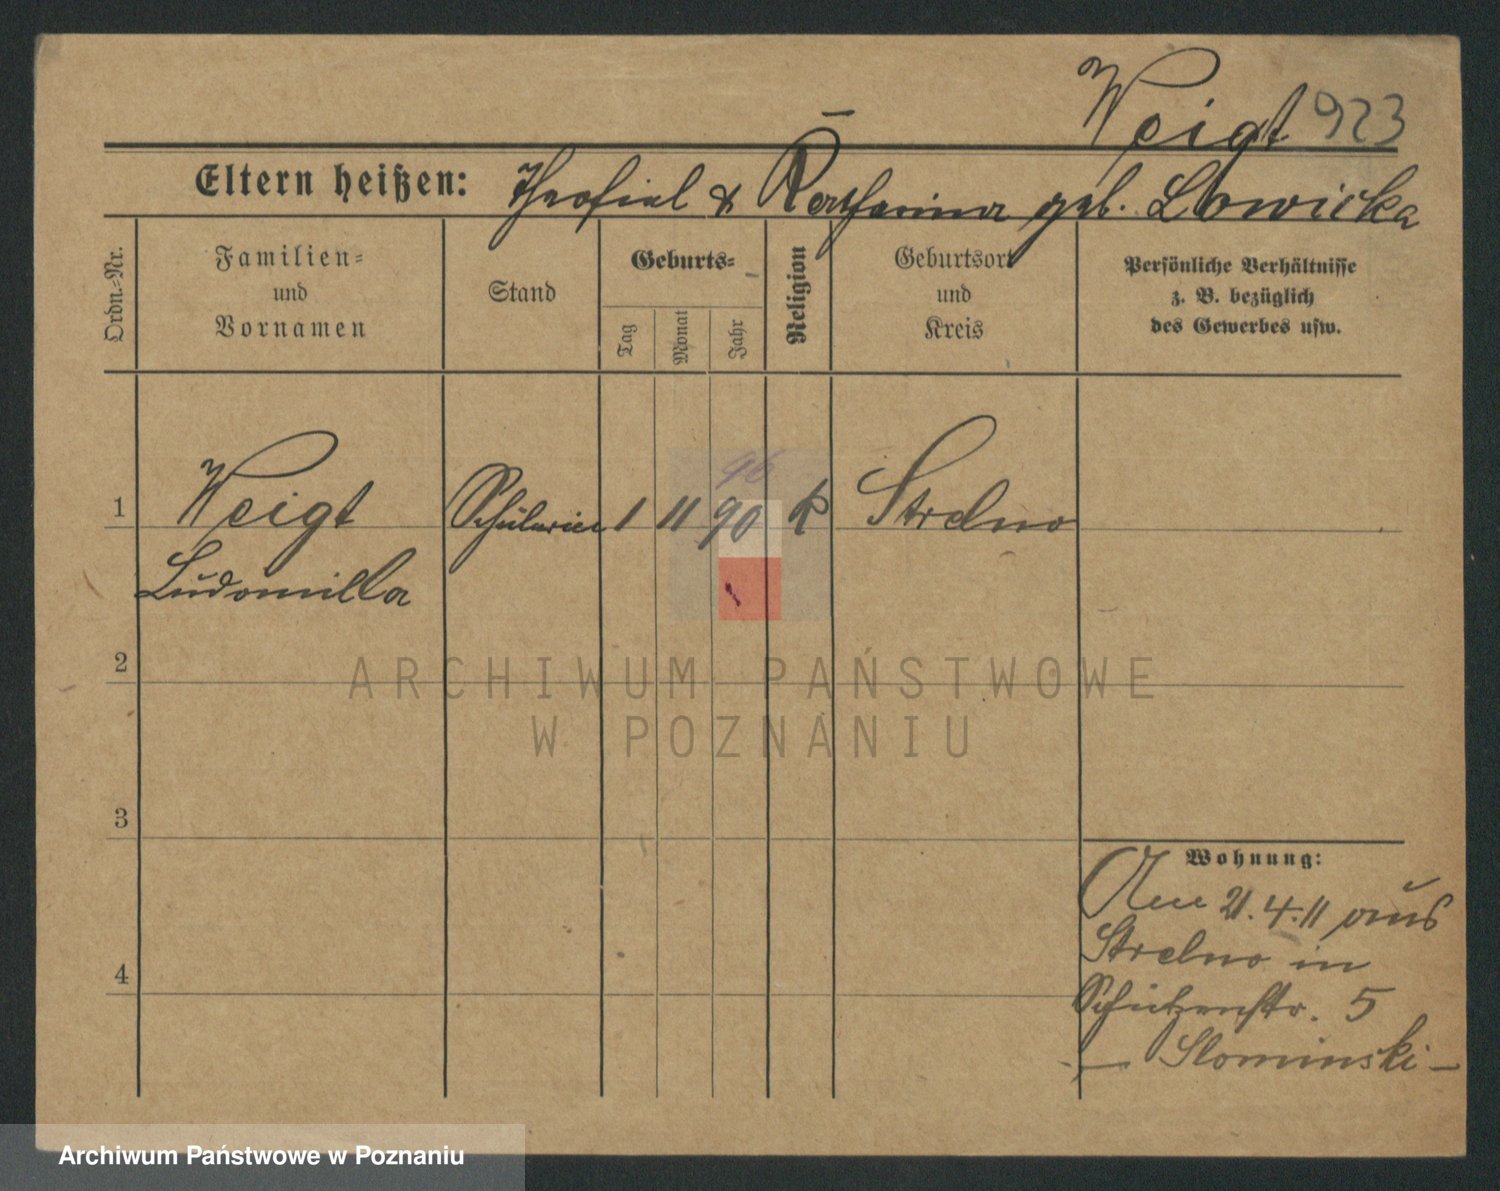 Weigt 923
Eltern heißen: Theofiel & Katharina geb. Lowicka
Ordn.-Nr.
Familien-
und
Vornamen
Stand
Geburts-
Tag
Monat
Jahr
Religion
Geburtsort
und
Kreis
Persönliche Verhältnisse
z. B. bezüglich
des Gewerbes usw.
96
1 Weigt Schülerin 1 11 90 k Strelno
Ludomilla
2
3
4
Wohnung:
Am 21.4.11 aus
Strelno in
Schützenstr. 5
— Slominski —
ARCHIWUM PAŃSTWOWE
W POZNANIU
Archiwum Państwowe w Poznaniu